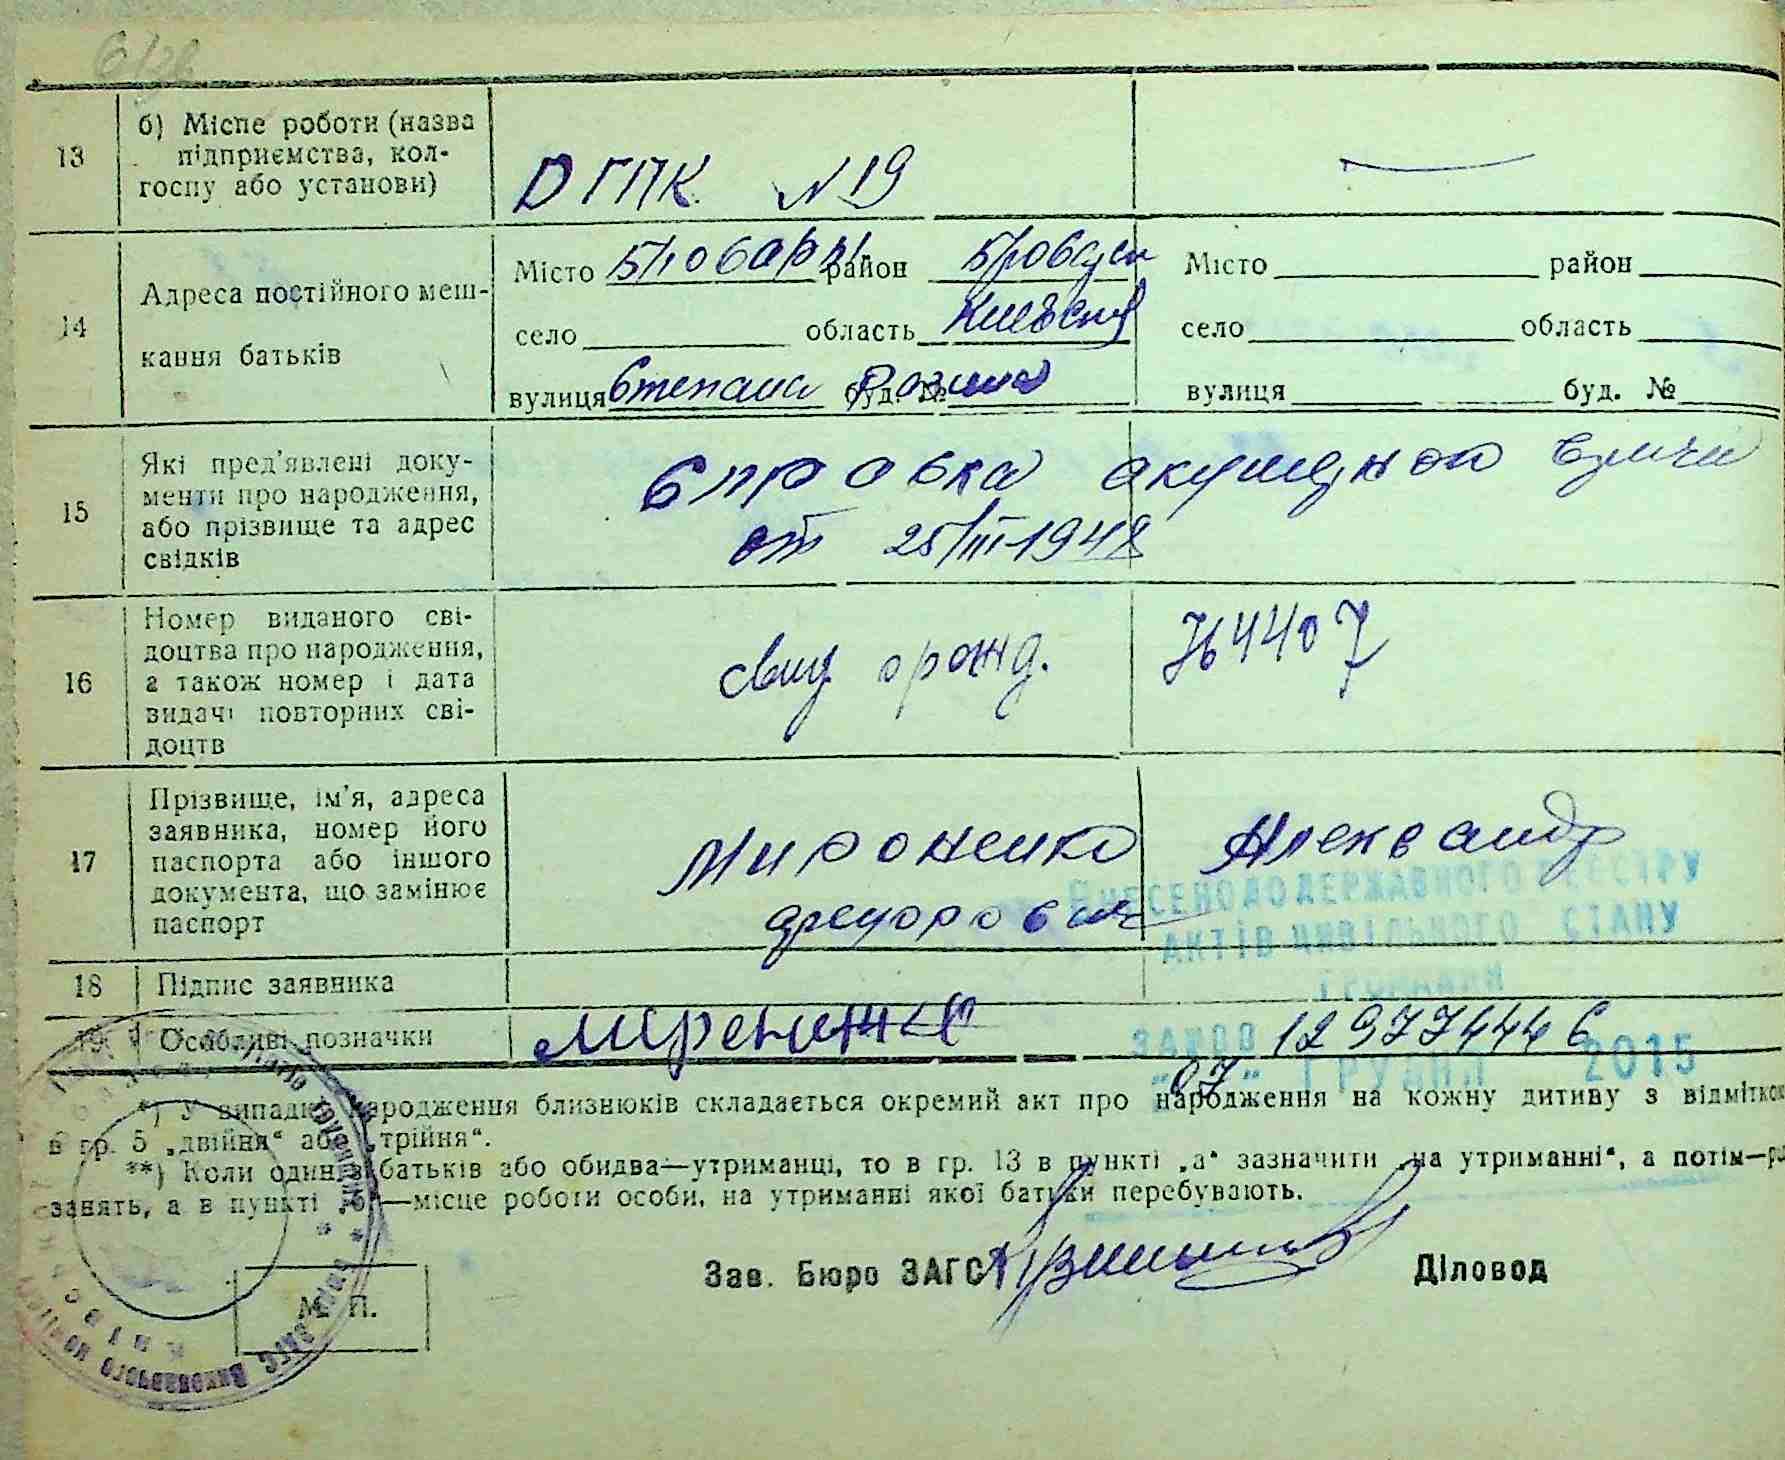 13 б) Місце роботи (назва підприємства, колгоспу або установи)
ДГПК N 19 —
14 Адреса постійного мешкання батьків
Місто Бровары район Бровадск Місто район
село область Киевск село область
вулиця Степана Разина буд. № вулиця буд. №
15 Які пред'явлені документи про народження, або прізвище та адрес свідків
Справка акушерского
от 25/III-1948
16 Номер виданого свідоцтва про народження, а також номер і дата видачі повторних свідоцтв
свид о рожд. 764407
17 Прізвище, ім'я, адреса заявника, номер його паспорта або іншого документа, що замінює паспорт
Мироненко Александр
Федорович
ВНЕСЕНО ДО ДЕРЖАВНОГО РЕЄСТРУ
АКТІВ ЦИВІЛЬНОГО СТАНУ
ГРОМАДЯН
18 Підпис заявника
19 Особливі позначки
129774446
"07" ГРУДНЯ 2015
*) У випадку народження близнюків складається окремий акт про народження на кожну дитину з відміткою
в гр. 5 „двійня“ або „трійня“.
**) Коли один з батьків або обидва—утриманці, то в гр. 13 в пункті „а“ зазначити „на утриманні“, а потім—
занять, а в пункті „б“—місце роботи особи, на утриманні якої батьки перебувають.
Зав. Бюро ЗАГС Діловод
М. П.